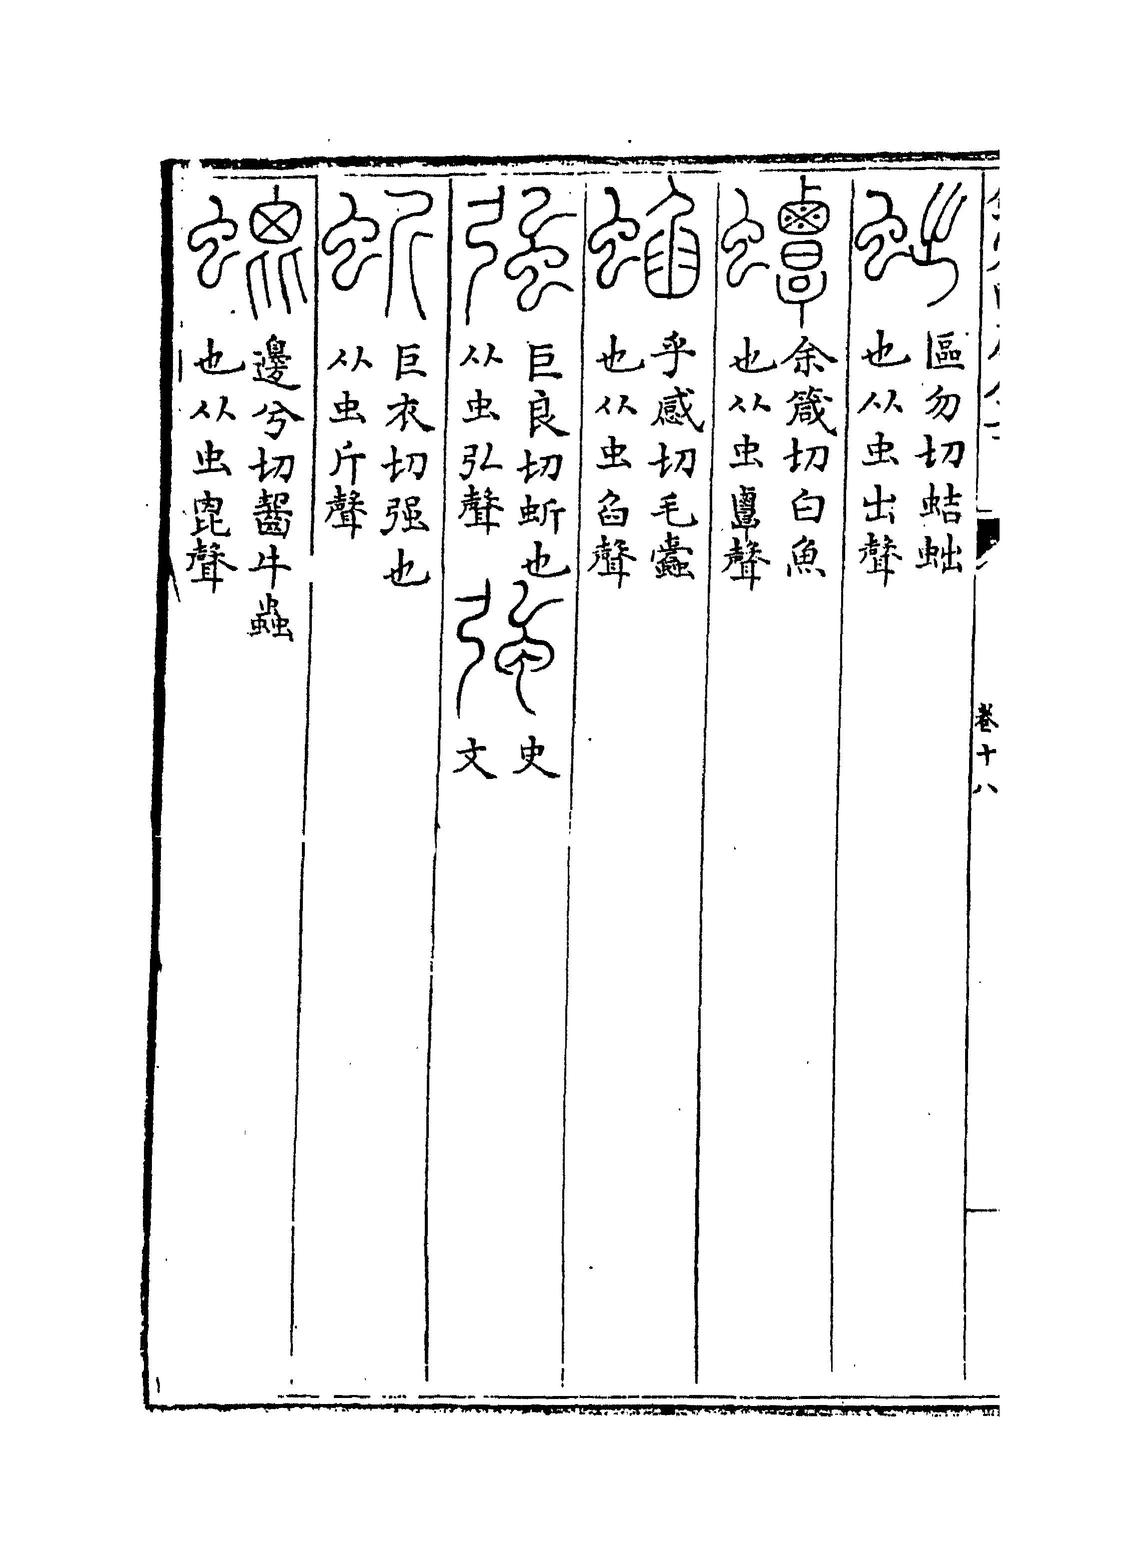 區勿切蛣
也从虫出聲
蟫
余箴切白魚
也从虫覃聲
蜭
乎感切毛蠹
也从虫臽聲
強
巨良切蚚也
从虫弘聲
史
文
蚚
巨衣切强也
从虫斤聲
螕
邊兮切齧牛蟲
也从虫𣬉聲
卷十八